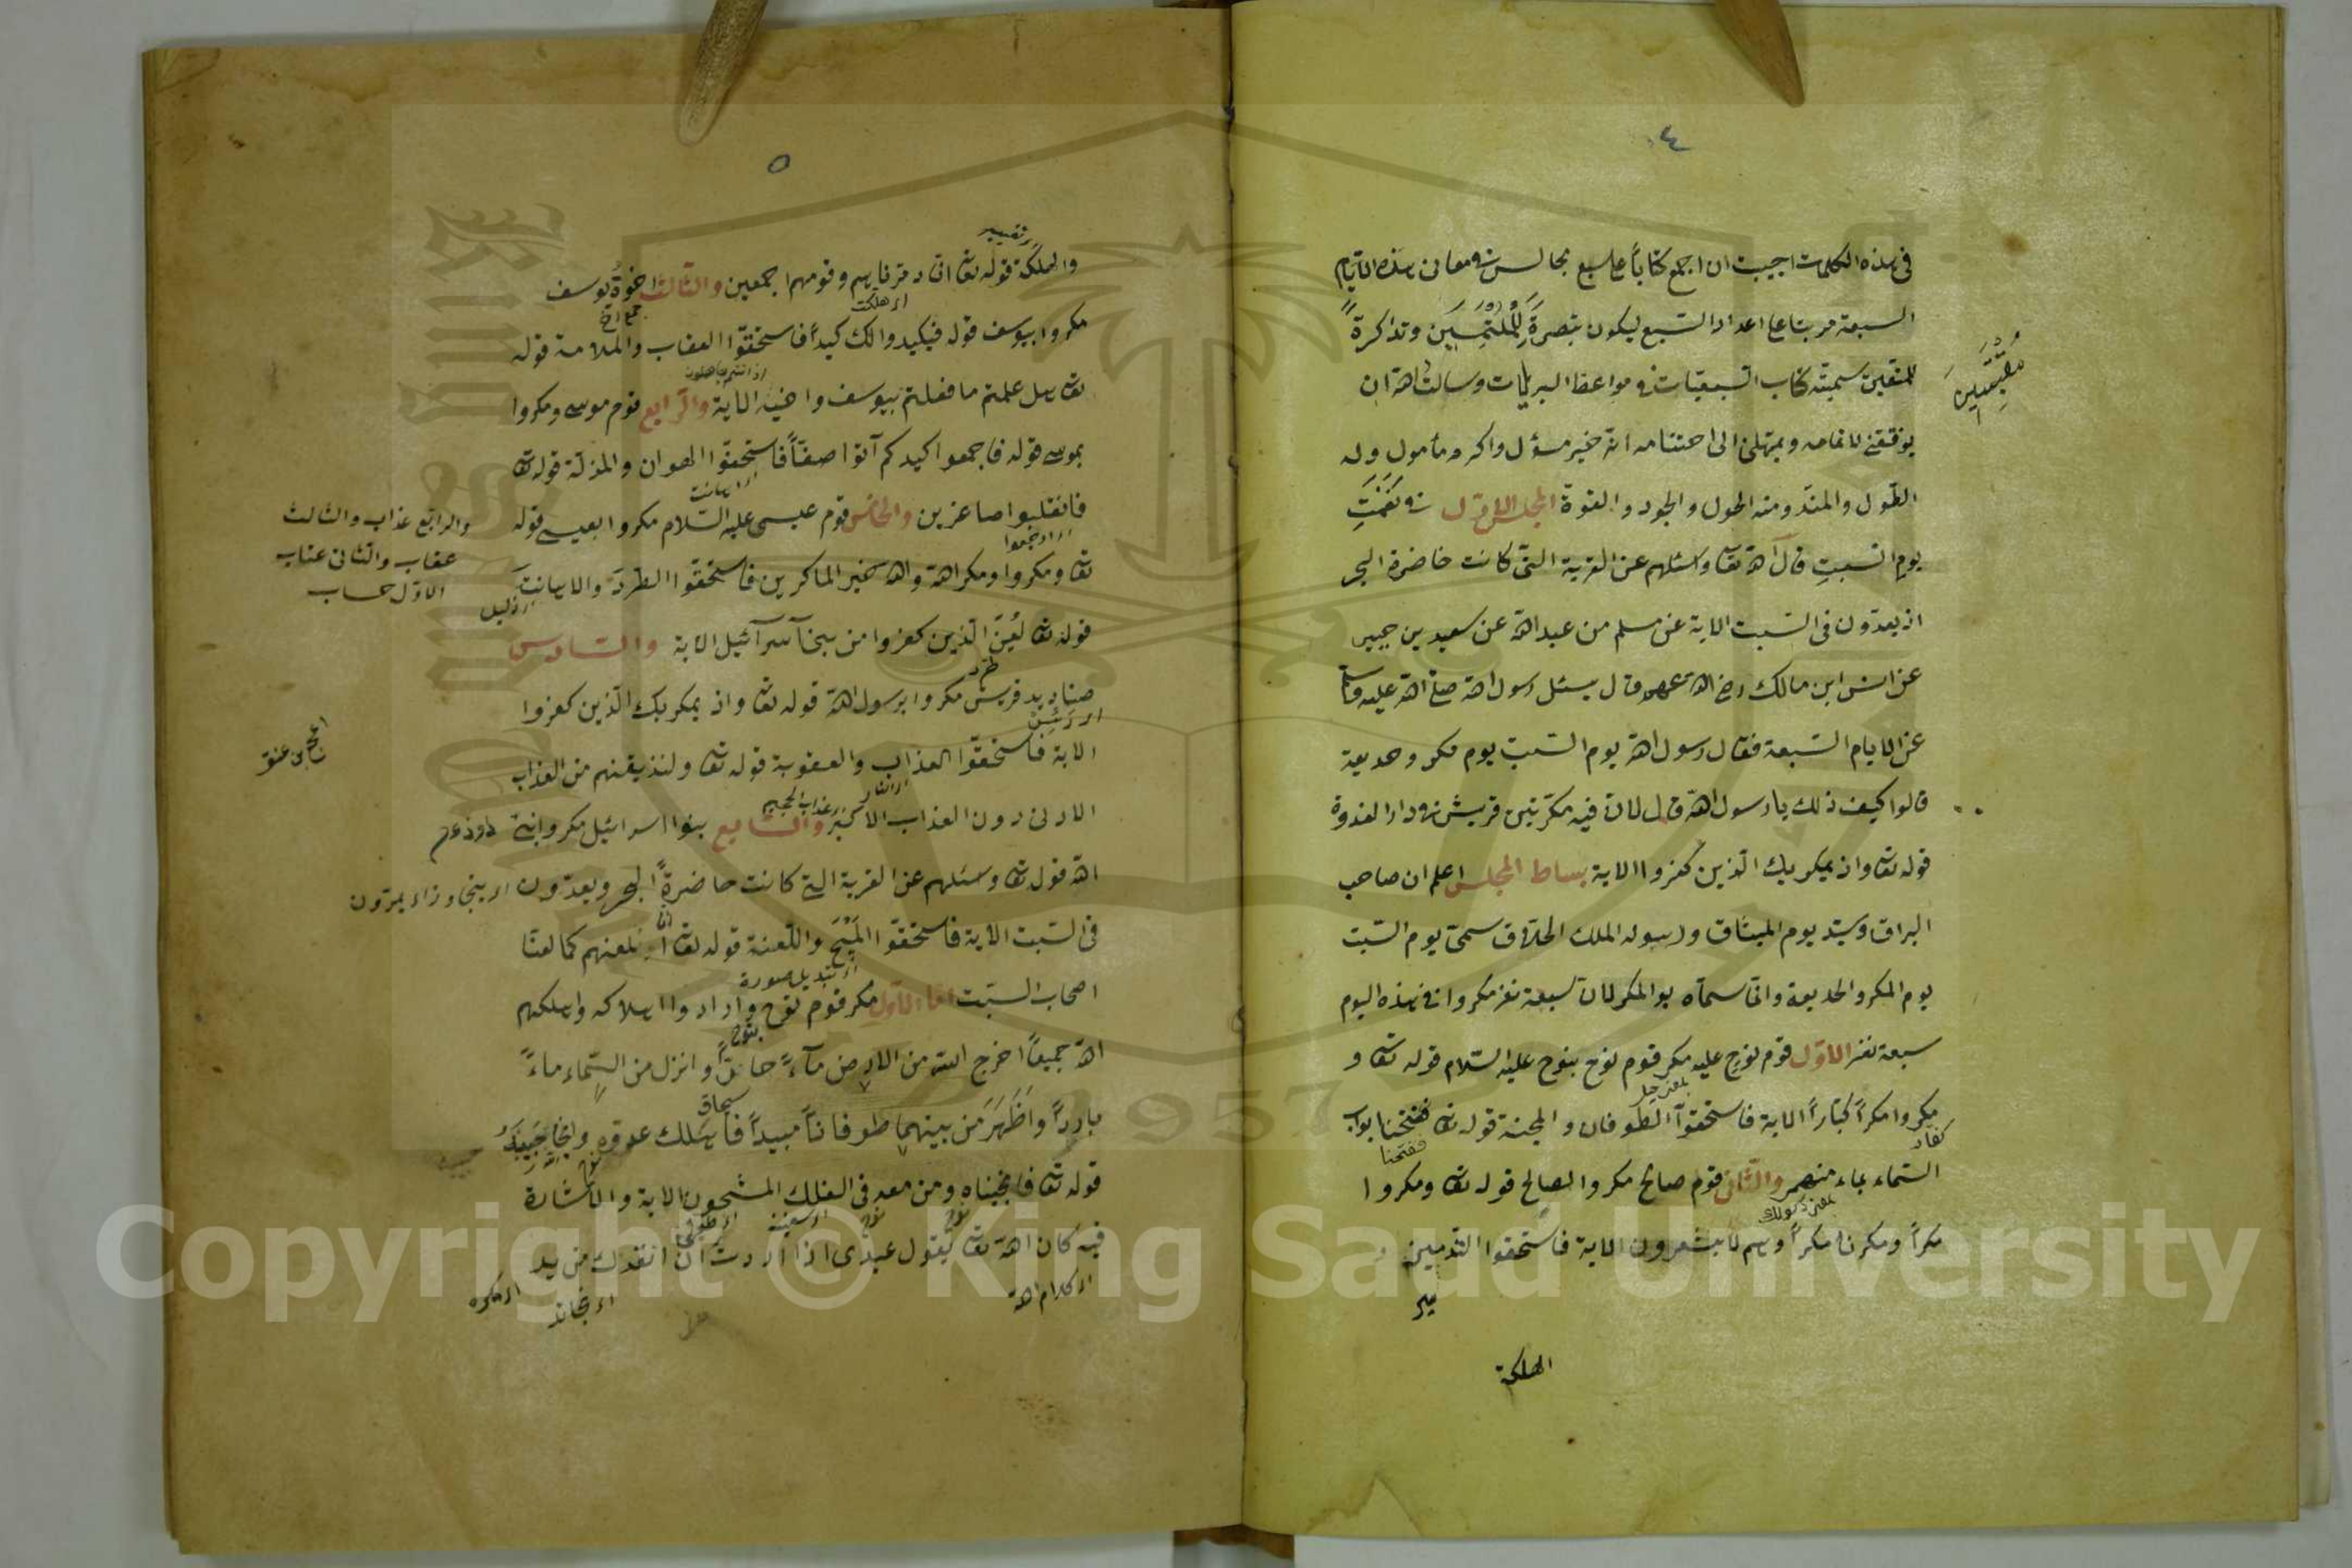 ٤
فى هذه الكلمات اجببت ان اجمع كتاباً على سبع مجالس فى معانى هذه الايّام
السبعة مرتبا على اعداد السّبع ليكون تبصرةً للملتمسين وتذاكرةً
للمتقين سميته كتاب السبعيّات فى مواعظ البريات وسالت الله ان
يوفقنى لاتمامه ويمهلنى الى اختتامه انه خير مسؤل واكرم مأمول وله
الطّول والمنّة ومنه الحول والجود والقوة المجلس الاوّل فى
يوم السّبت قال الله تعا واسئلهم عن القرية الّتى كانت حاضرة البحر
اذ يعدون فى السّبت الاية عن مسلم من عبد الله عن سعيد بن جبير
عن انس ابن مالك رضى الله عنهم قال سئل رسول الله صلّى الله عليه وسلّم
عن الايام السّبعة فقال رسول الله يوم السّبت يوم مكر وخديعة
قالوا كيف ذلك يا رسول الله قال لانّ فيه مكرت قريش فى دار الندوة
قوله تعا واذ يمكر بك الّذين كفروا الاية بساط المجلس اعلم ان صاحب
البراق وسيّد يوم الميثاق ورسول الملك الخلّاق سمى يوم السّبت
يوم المكر والخديعة وانّما سمّاه يو المكر لانّ سبعة نفر مكروا فى هذه اليوم
سبعة نفر الاوّل قوم نوح عليه مكر قوم نوح بنوح عليه السّلام قوله تعا و
مكروا مكراً كبّاراً الاية فاستحقوا الطوفان والمحنة قوله تعا ففتحنا ابواب
السّماء بماء منهمر والثّانى قوم صالح مكروا بصالح قوله تعا ومكروا
مكراً ومكرنا مكراً وهم لا يشعرون الاية فاستحقوا التدمير
الهلكة
٥
والهلكة قوله تعا انّا دمّرناهم وقومهم اجمعين والثّالث اخوة يوسف
اى هلكت
جمع اخ
مكروا بيوسف قوله فيكيدوا لك كيداً فاستحقّوا العقاب والملامة قوله
اذ انتم جاهلون
تعا هل علمتم ما فعلتم بيوسف واخيه الاية والرّابع قوم موسى ومكروا
بموسى قوله فاجمعوا كيدكم ثمّ ائتوا صفّاً فاستحقوا الهوان والمذلّة قوله تعا
فانقلبوا صاغرين والخامس قوم عيسى عليه السّلام مكروا بعيسى قوله
تعا ومكروا ومكر الله والله خير الماكرين فاستحقّوا الطّرد والاهانة
قوله تعا لُعِنَ الّذين كفروا من بنى اسرآئيل الاية والسّادس
صناديد قريش مكروا برسول الله قوله تعا واذ يمكر بك الّذين كفروا
الاية فاستحقّوا العذاب والعقوبة قوله تعا ولنذيقنهم من العذاب
الادنى دون العذاب الاكبر والسّابع بنوا اسرائيل مكروا بنبىّ
الله قوله تعا وسئلهم عن القرية التى كانت حاضرةً البحر ويعدون اى يتجاوزا يمرّون
فى السّبت الاية فاستحقوا المسخ واللّعنة قوله تعا او نلعنهم كما لعنّا
اى تبديل صورة
اصحاب السّبت امّا الاوّل مكر قوم نوح وارادوا اهلاكه واهلكهم
بنوح
الله جميعاً اخرج الله من الارض مآءً حارّاً وانزل من السّماء ماءً
بارداً واَظهَرَ من بينهما طوفاناً مبيداً فاهلك عدوّه وانجا
قوله تعا فانجيناه ومن معه فى الفلك المشحون الاية والاشارة
اى سفينة
فيه كان الله تعا يقول عبدى اذا اردت ان انقذك من يد
اى كلام الله
والرابع عذاب والثالث
عقاب والثانى عتاب
الاوّل حساب